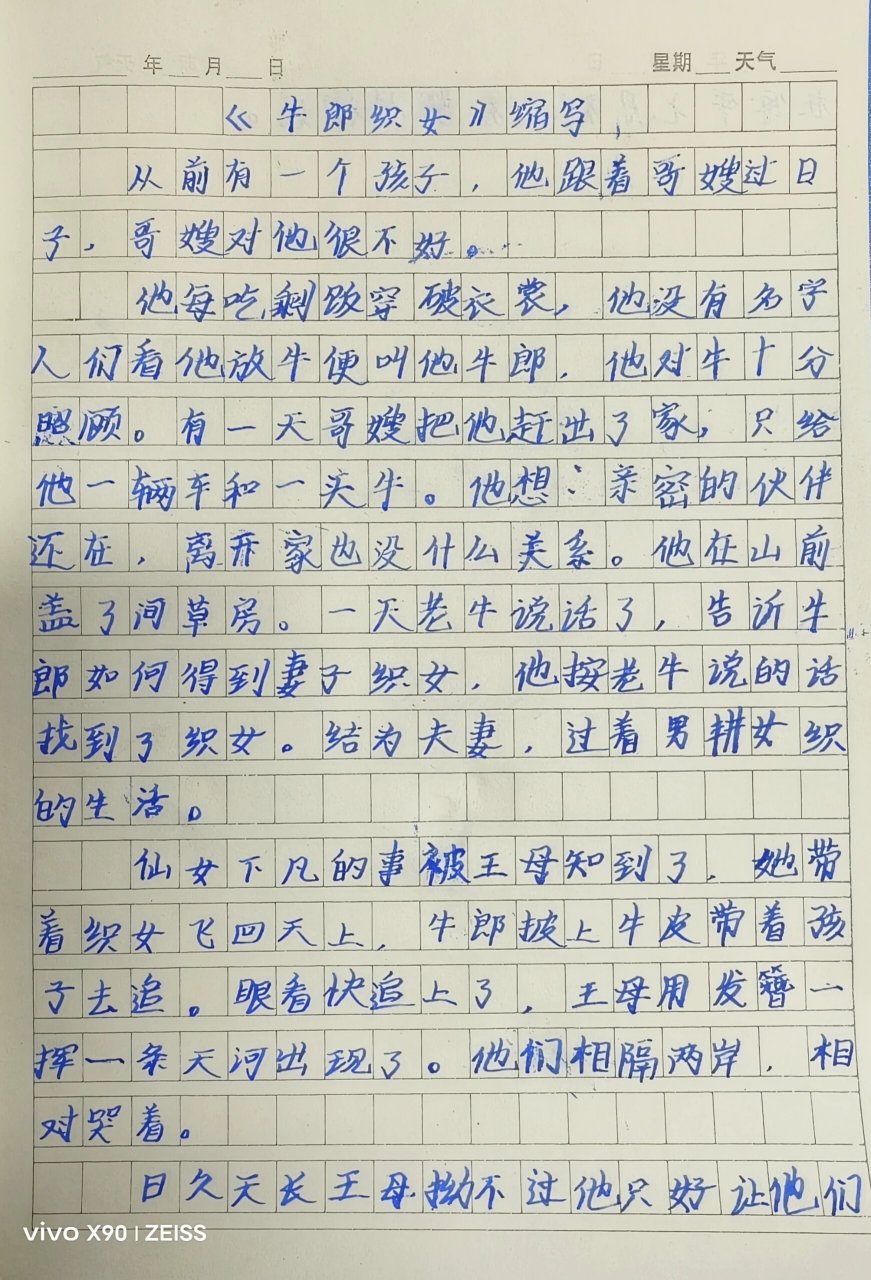 年 月 日 星期 天气
《牛郎织女》缩写
从前有一个孩子,他跟着哥嫂过日
子,哥嫂对他很不好。
他每吃剩饭穿破衣裳,他没有名字
人们看他放牛便叫他牛郎,他对牛十分
照顾。有一天哥嫂把他赶出了家,只给
他一辆车和一头牛。他想:亲密的伙伴
还在,离开家也没什么关系。他在山前
盖了间草房。一天老牛说话了,告诉牛
郎如何得到妻子织女,他按老牛说的话
找到了织女。结为夫妻,过着男耕女织
的生活。
仙女下凡的事被王母知到了,她带
着织女飞回天上,牛郎披上牛皮带着孩
子去追。眼看快追上了,王母用发簪一
挥一条天河出现了。他们相隔两岸,相
对哭着。
日久天长王母拗不过他只好让他们
vivo X90 | ZEISS